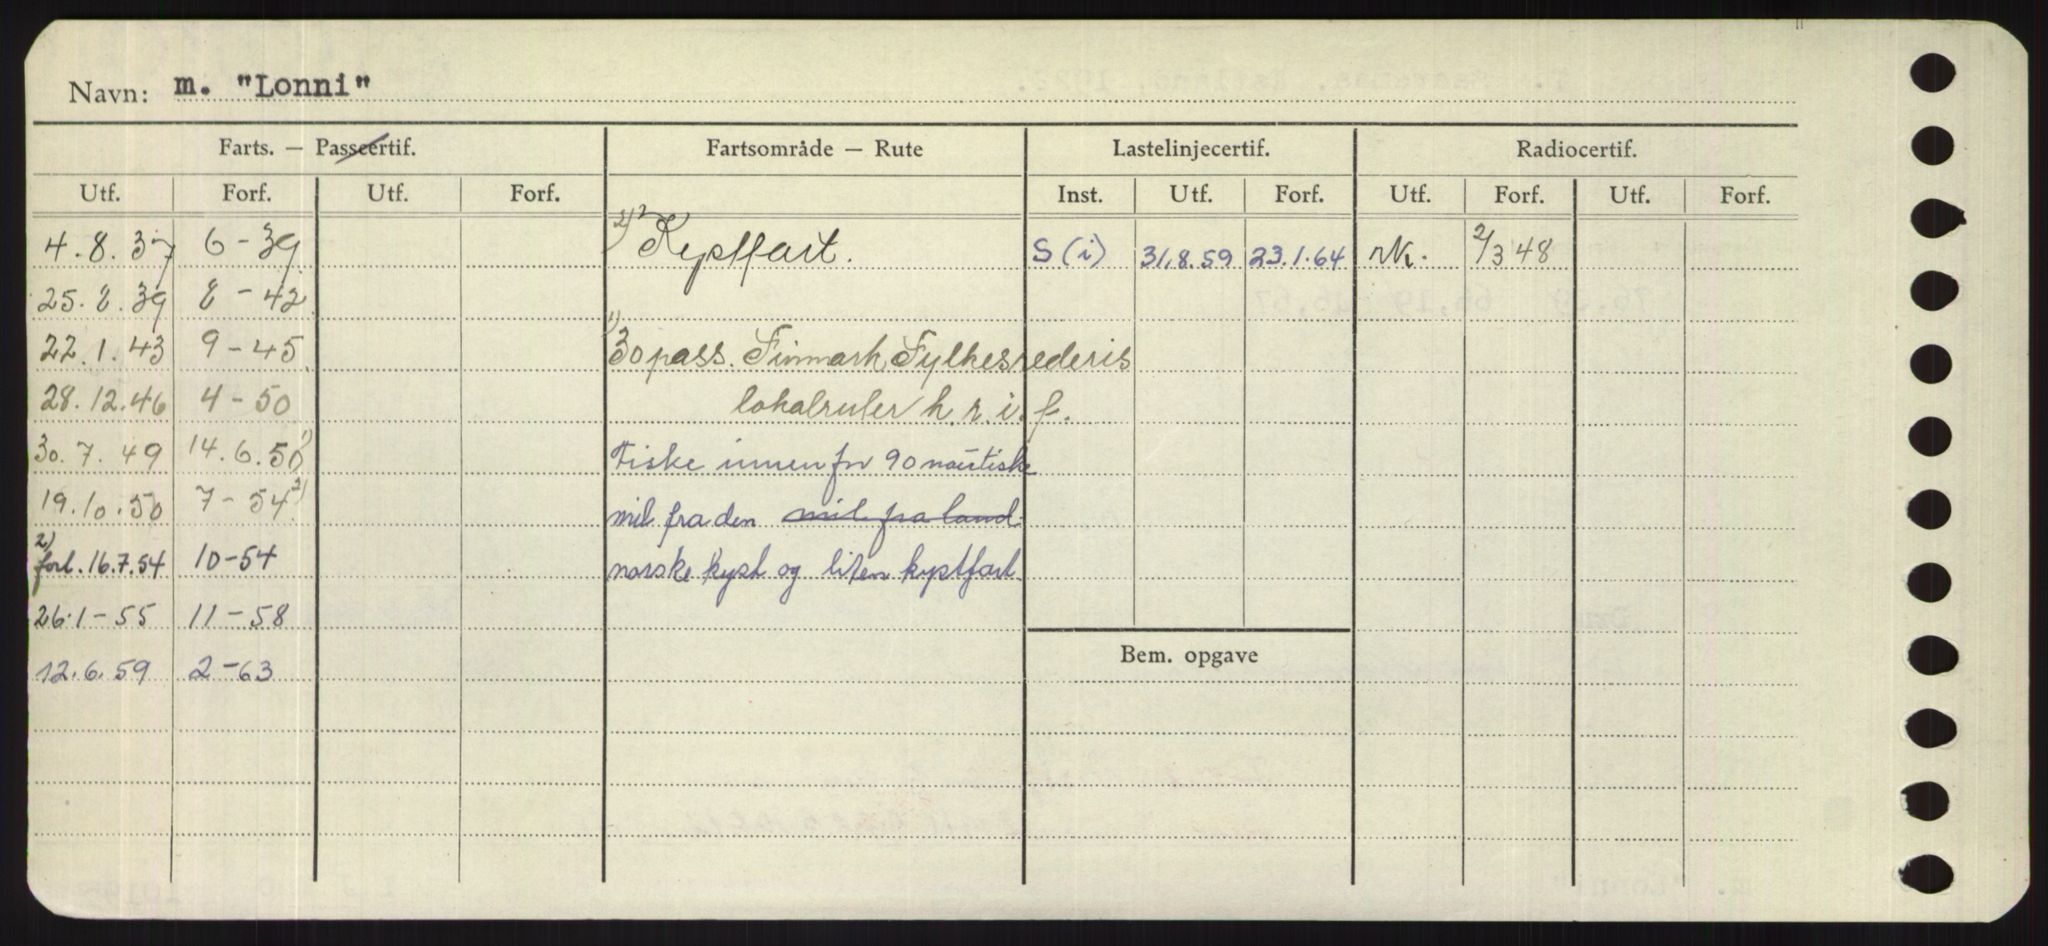 Navn: m. "Lonni"
Farts. — Passcertif. Fartsområde — Rute Lastelinjecertif. Radiocertif.
Utf. Forf. Utf. Forf. Inst. Utf. Forf. Utf. Forf. Utf. Forf.
4.8.37 6-39 2) Kystfart. S(i) 31.8.59 23.1.64 rk. 2/3 48
25.8.39 8-42
22.1.43 9-45 1) 30 pass. Finmark Fylkesrederis
28.12.46 4-50 lokalruter h.r.i.f.
30.7.49 14.6.50 1) Fiske innenfor 90 nautiske
19.10.50 7-54 2) mil fra den mil fra land
2) forl. 16.7.54 10-54 norske kyst og liten kystfart.
26.1-55 11-58
Bem. opgave
12.6.59 2-63